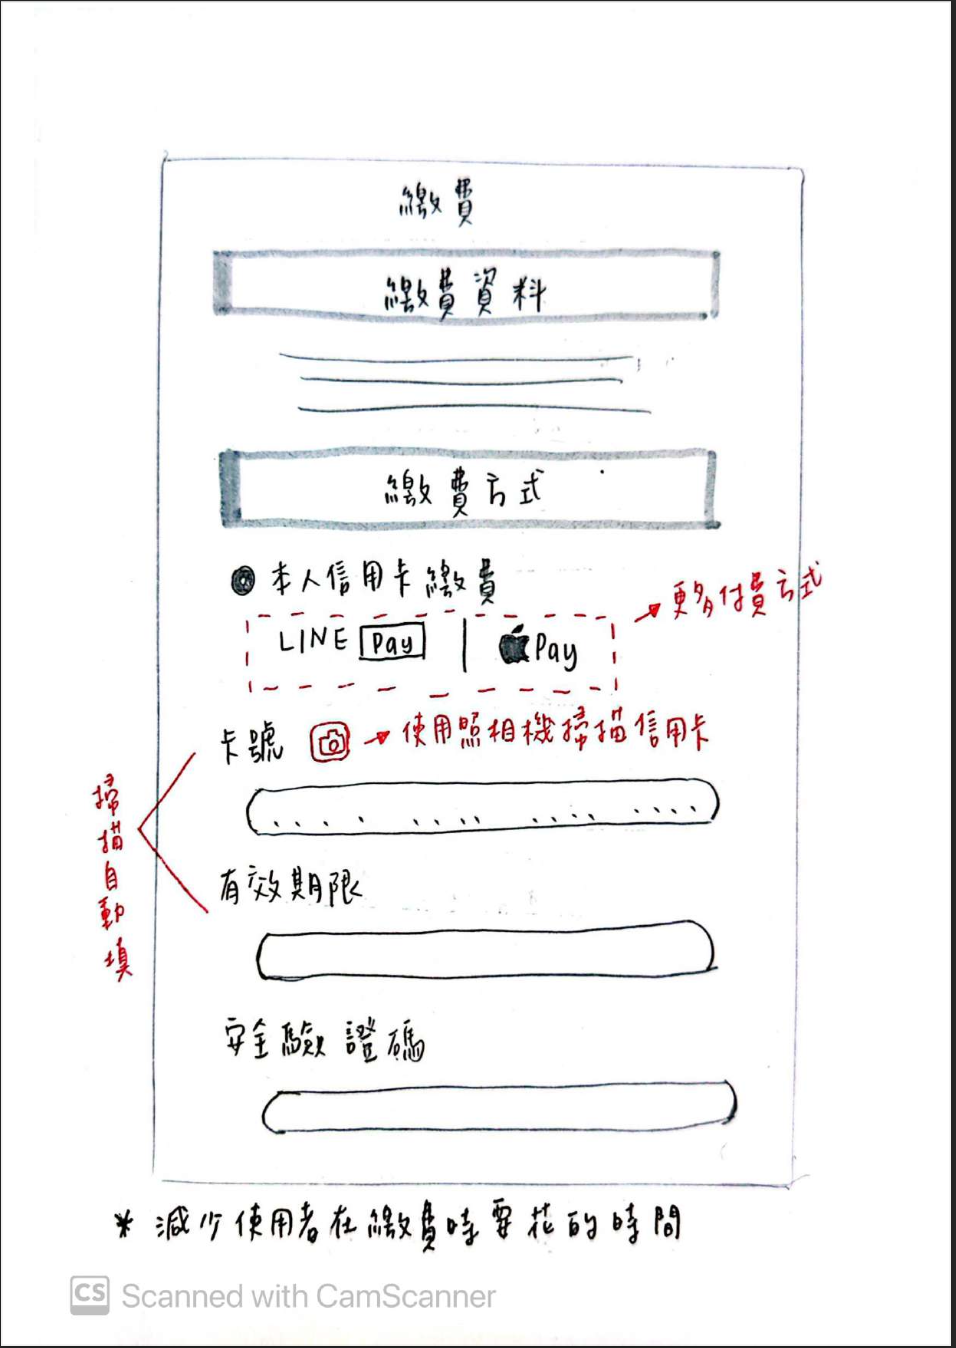 繳費
繳費資料
繳費方式
本人信用卡繳費
更多付費方式
LINE Pay | Pay
卡號 使用照相機掃描信用卡
掃描自動填
有效期限
安全驗證碼
* 減少使用者在繳費時要花的時間
CS Scanned with CamScanner